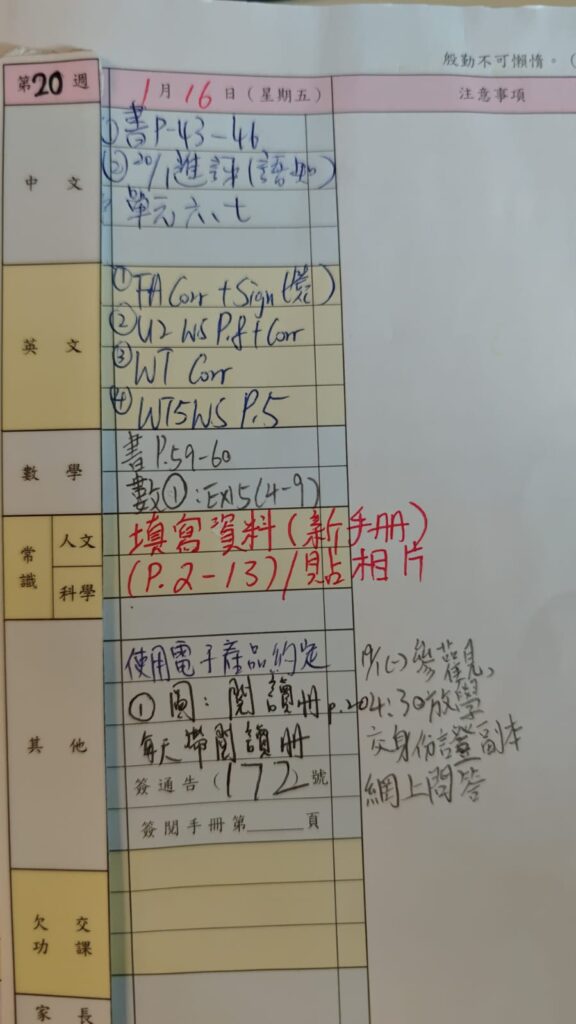 殷勤不可懶惰。(
第20週
1月16日(星期五)
注意事項
中文
① 書P.43-46
② 20/1進評(語知)
單元六、七
英文
① FA Corr + Sign
② U2 WS P.8 + Corr
③ WT Corr
④ WT5WS P.5
數學
書P.59-60
數①:EX15(4-9)
常識
人文
科學
填寫資料(新手冊)
(P.2-13)/貼相片
其他
使用電子產品約定
① 圖:閱讀冊p.20
每天帶閱讀冊
簽通告(172)號
簽閱手冊第______頁
19/1(一)參觀,
4:30放學
交身份證副本
網上問答
欠交功課
家長